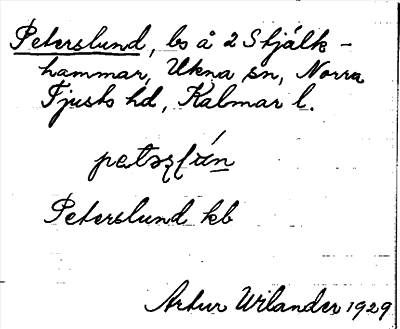 Peterslund, ls å 2 Stjälk-
hammar, Ukna sn, Norra
Tjusts hd, Kalmar l.
Peterslund kb
Artur Wilander 1929